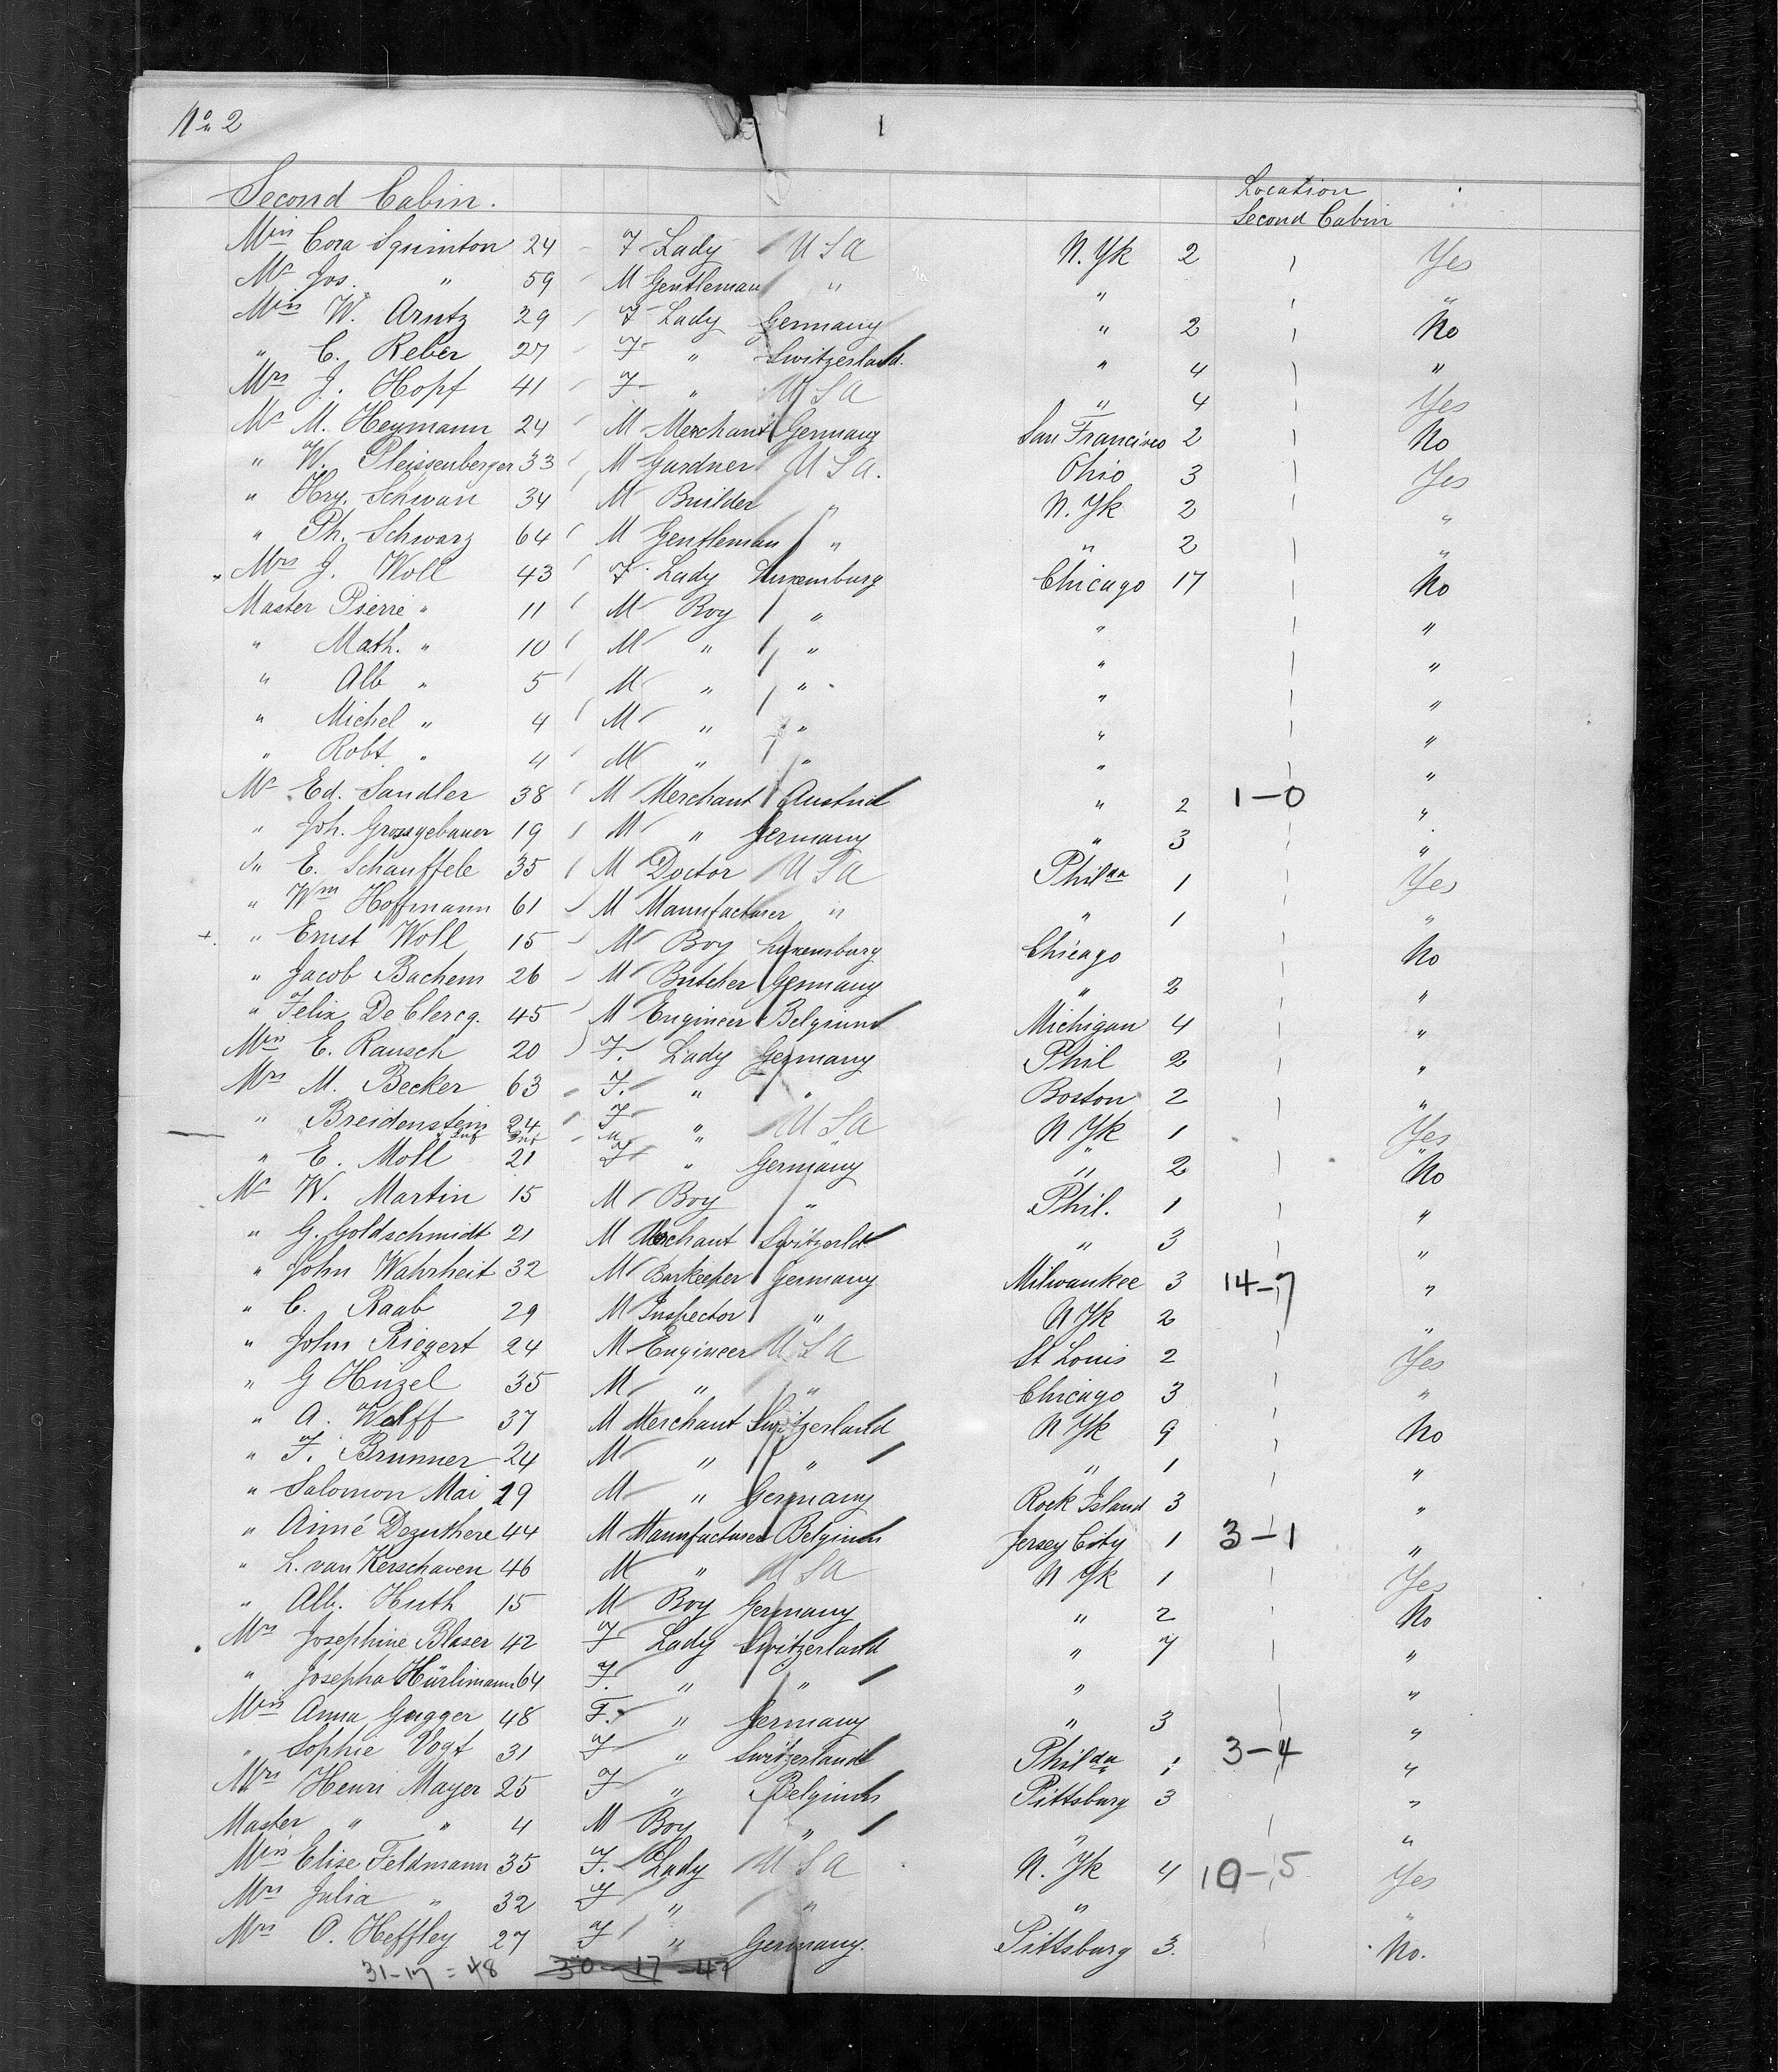 No 2
1
Second Cabin. Location Second Cabin
Miss Cora Squinton 24 F Lady U S A N. Yk 2 Yes
Mr Jos. " 59 M Gentleman " " "
Miss W. Arntz 29 F Lady Germany " 2 No
" C. Reber 27 F " Switzerland. " 4 "
Mrs J. Hopf 41 F " U S A " 4 Yes
Mr M. Heymann 24 M Merchant Germany San Francisco 2 No
" W. Pleissenberger 33 M Gardner U S A. Ohio 3 Yes
" Hry. Schwan 34 M Builder " N. Yk 2 "
" Ph. Schwarz 64 M Gentleman " " 2 "
" Mrs J. Woll 43 F. Lady Luxemburg Chicago 17 No
Master Pierre " 11 M Boy " " "
" Math. " 10 M " " " "
" Alb " 5 M " " " "
" Michel " 4 M " " " "
" Robt " 4 M " " " "
Mr Ed. Sandler 38 M Merchant Austria " 2 1-0 "
" Joh. Grossgebauer 19 M " Germany " 3 "
" E. Schauffele 35 M Doctor U S A Philda 1 Yes
" Wm Hoffmann 61 M Manufacturer " " 1 "
+. " Ernst Woll 15 M Boy Luxemburg Chicago No
" Jacob Bachem 26 M Butcher Germany " 2 "
" Felix De Clercq. 45 M Engineer Belgium Michigan 4 "
Miss E. Rausch 20 F. Lady Germany Phil 2 "
Mrs M. Becker 63 F. " " Boston 2 "
" Breidenstein 24 F " U S A N Yk 1 Yes
& Inf Inf M " " "
" E. Moll 21 F " Germany " 2 No
Mr W. Martin 15 M Boy " Phil. 1 "
" G. Goldschmidt 21 M Merchant Switzerld " 3 "
" John Wahrheit 32 M Barkeeper Germany Milwaukee 3 14-7 "
" C. Raab 29 M Inspector " N Yk 2 "
" John Riegert 24 M Engineer U S A St Louis 2 Yes
" G Hüzel 35 M " " Chicago 3 "
" A. Wolff 37 M Merchant Switzerland N Yk 9 No
" F. Brunner 24 M " " " 1 "
" Salomon Mai 19 M " Germany Rock Island 3 "
" Aimé Dezuthere 44 M Manufacturer Belgium Jersey City 1 3-1 "
" L. van Kerschaven 46 M " U S A N Yk 1 Yes
" Alb. Huth 15 M Boy Germany " 2 No
Mrs Josephine Blaser 42 F Lady Switzerland " 7 "
" Josepha Hürlimann 64 F. " " " "
Miss Anna Gugger 48 F. " Germany " 3 "
" Sophie Vogt 31 F " Switzerland Philda 1 3-4 "
Mrs Henri Mayer 25 F " Belgium Pittsburg 3 "
Master " " 4 M Boy " " "
Miss Elise Feldmann 35 F. Lady U S A N. Yk 4 10-5 Yes
Mrs Julia " 32 F " " " "
Mrs O. Heffley 27 F " Germany. Pittsburg 3. No.
31-17 = 48 30-17-47